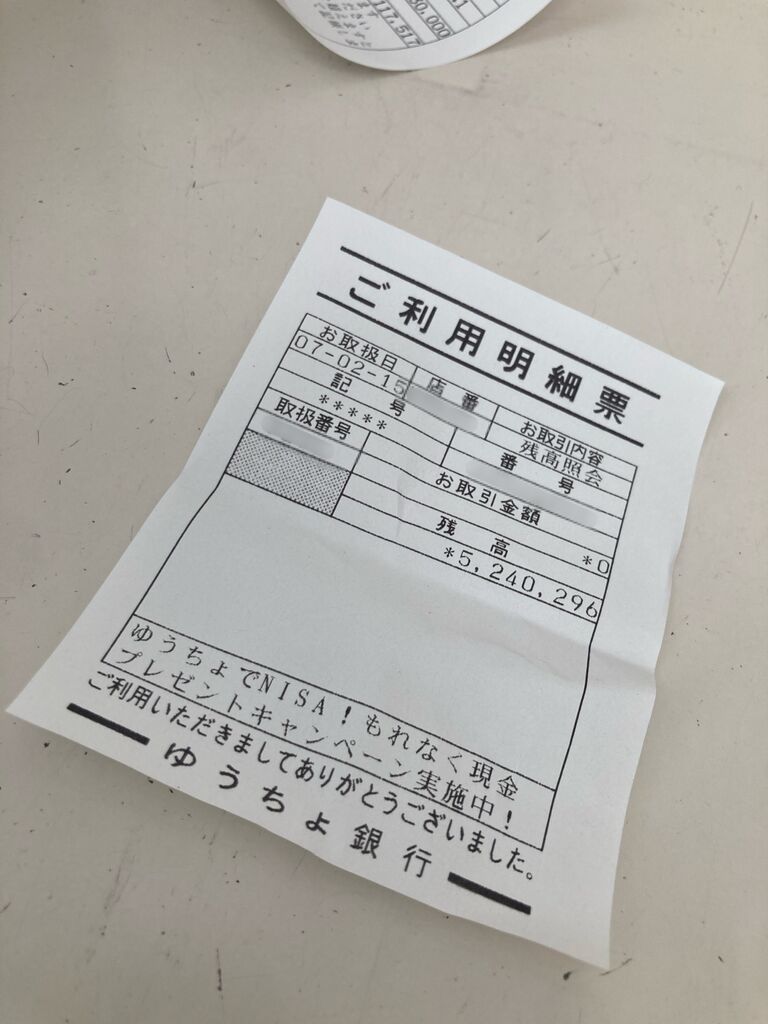 30,000
117,517
ご利用明細票
お取扱日 店番 お取引内容
07-02-15 残高照会
記号 番号
*****
取扱番号 お取引金額
*0
残高
*5,240,296
ゆうちょでNISA！もれなく現金
プレゼントキャンペーン実施中！
ご利用いただきましてありがとうございました。
ゆうちょ銀行